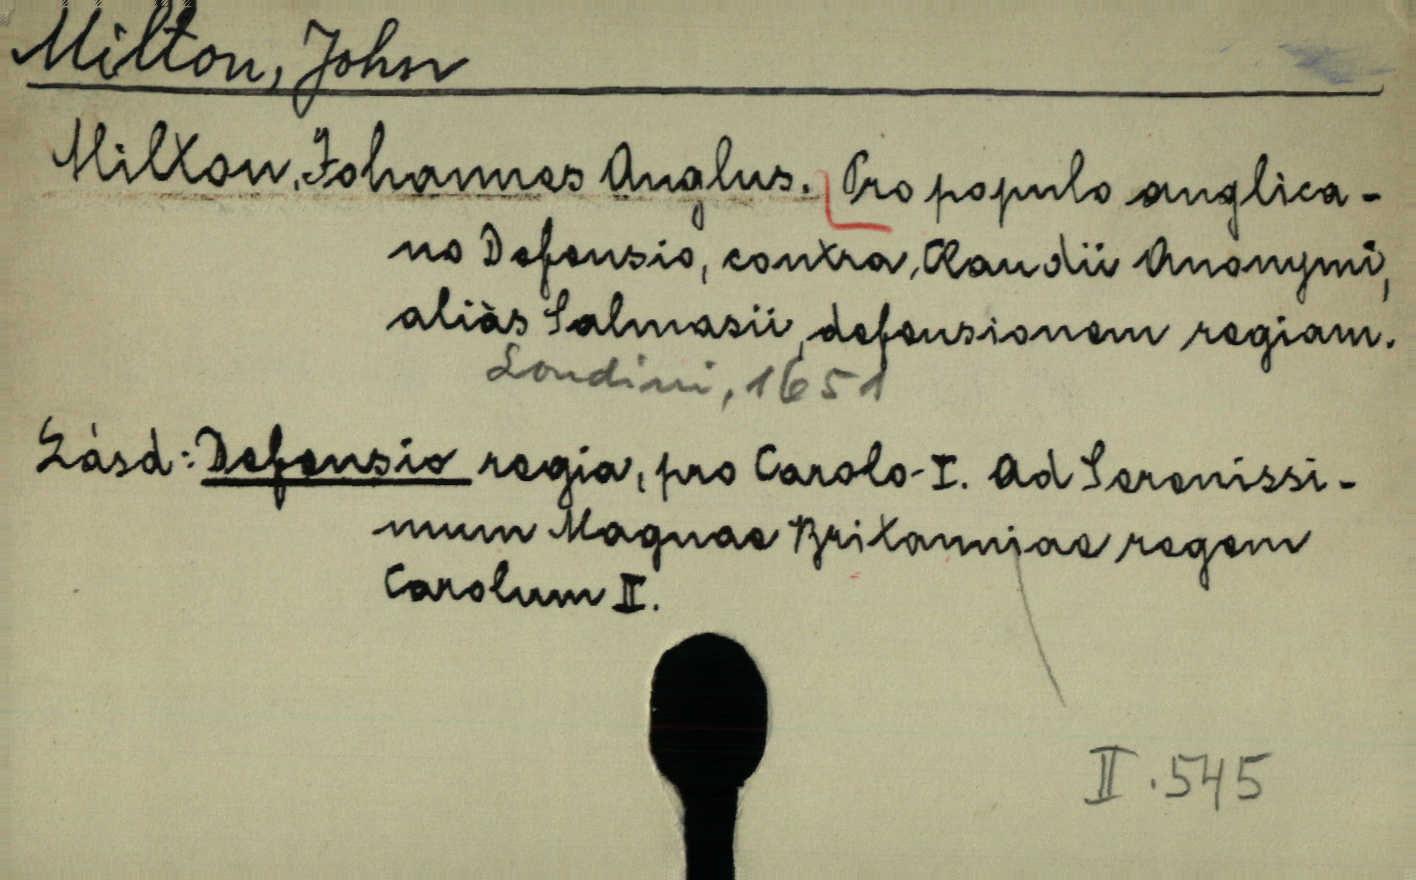 Milton, John
Milton, Johannes Anglus. Pro populo anglica-
no Defensio, contra, Claudii Anonymi,
aliàs Salmasii, defensionem regiam.
Londini, 1651
Lásd: Defensio regia, pro Carolo I. Ad Serenissi-
mum Magnae Britanniae regem
Carolum II.
II. 545